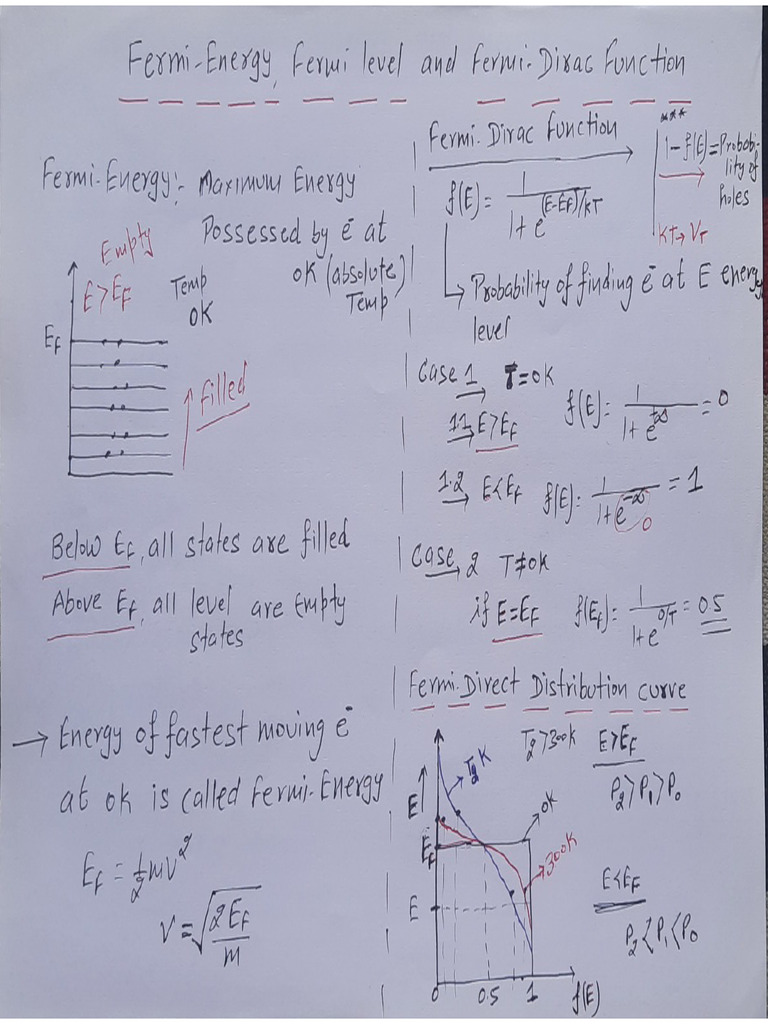 Fermi-Energy, Fermi level and Fermi-Dirac Function
Fermi-Energy:- Maximum Energy
Possessed by e⁻ at
0K (absolute Temp)
Empty
E>E_F
Temp
0K
E_F
filled
Below E_F, all states are filled
Above E_F, all level are Empty
states
→ Energy of fastest moving e⁻
at 0K is called Fermi-Energy
E_F = 1/2 mv²
V = √(2E_F/m)
Fermi-Dirac Function
f(E) = 1/(1+e^((E-E_F)/KT))
***
1-f(E) = Probability of holes
KT→V_T
↳ Probability of finding e⁻ at E energy
level
Case 1 T=0K
1.1 E>E_F f(E) = 1/(1+e^∞) = 0
1.2 E<E_F f(E) = 1/(1+e^-∞) = 1
0
Case 2 T≠0K
if E=E_F f(E_F) = 1/(1+e^(0/T)) = 0.5
Fermi-Direct Distribution curve
T₂ K
T₂>300K
E>E_F
P₂>P₁>P₀
E
0K
E_F
300K
E
E<E_F
P₂<P₁<P₀
0 0.5 1 f(E)